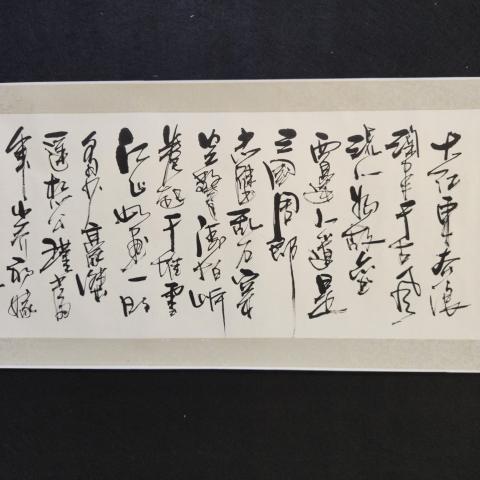 大江東去浪
淘盡千古風
流人物故壘
西邊人道是
三國周郎
赤壁乱石穿
空驚濤拍岸
卷起千堆雪
江山如畫一時
多少豪傑
遥想公瑾當
年小喬初嫁